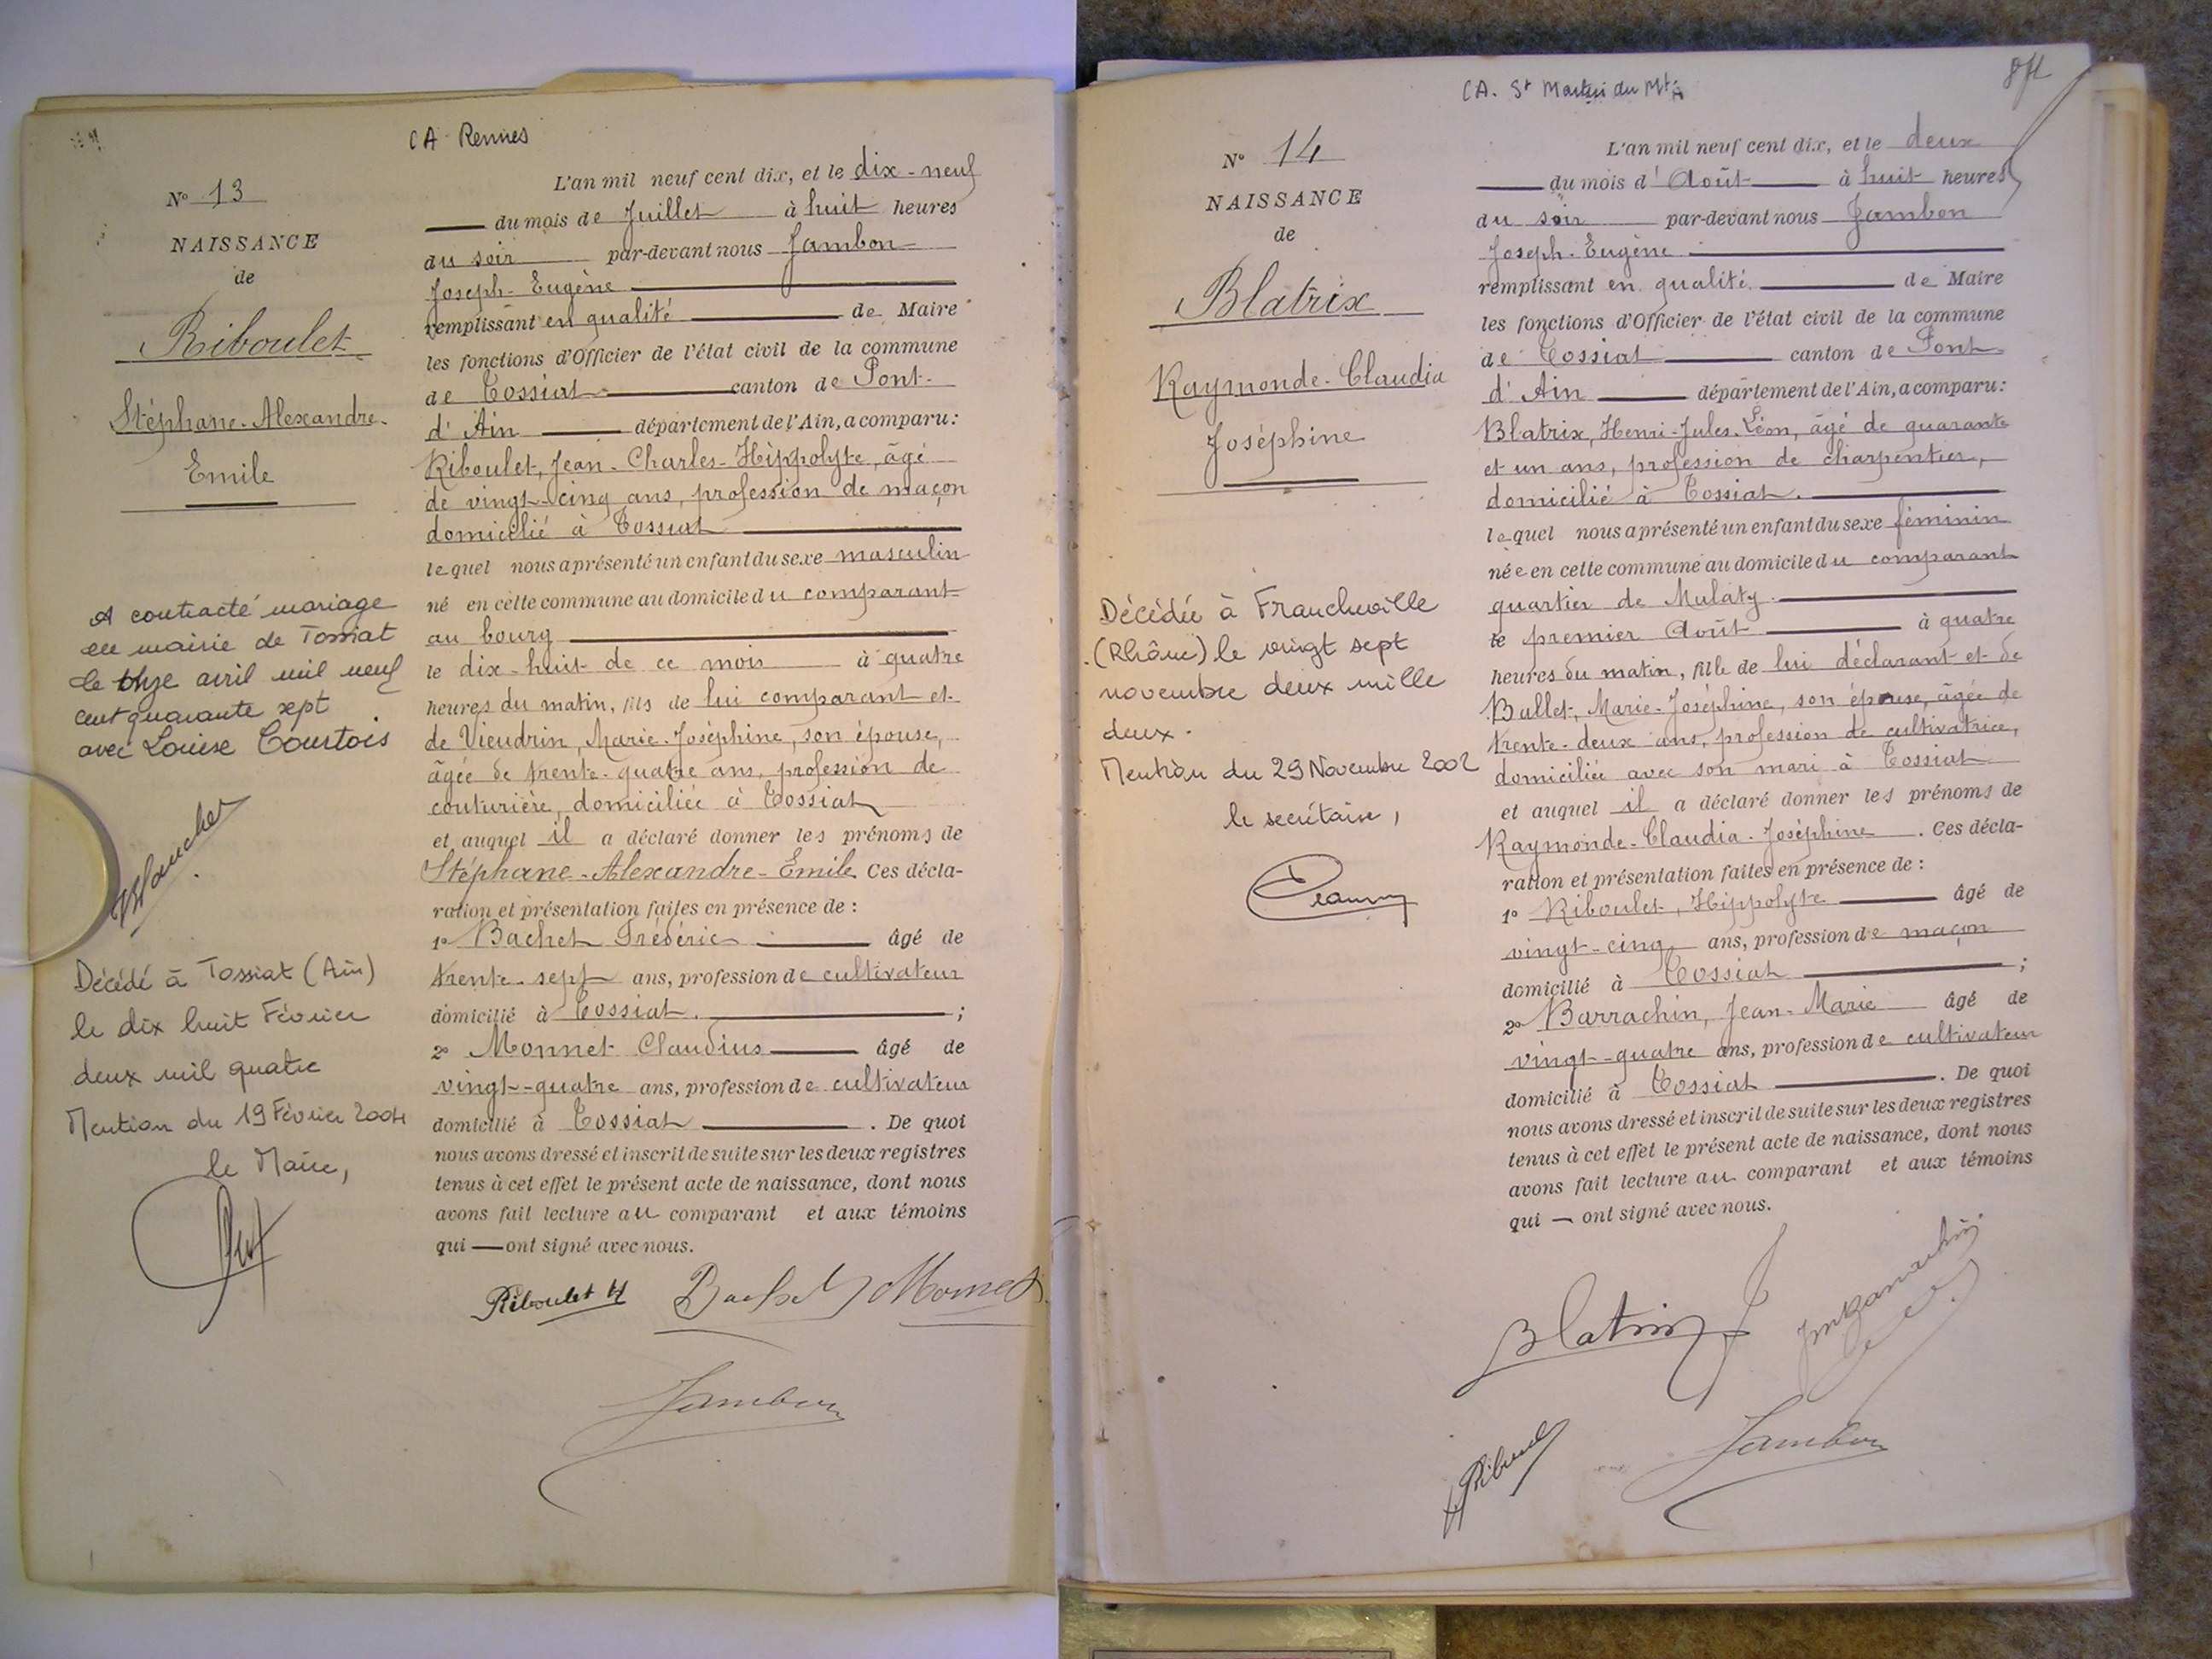 CA Rennes
N° 13
NAISSANCE
de
Riboulet
Stéphane-Alexandre-
Emile
A contracté mariage
en mairie de Tossiat
le onze avril mil neuf
cent quarante sept
avec Louise Courtois
Blanchet
Décédé à Tossiat (Ain)
le dix huit Février
deux mil quatre
Mention du 19 Février 2004
le Maire,
L'an mil neuf cent dix, et le dix-neuf
du mois de Juillet à huit heures
du soir par-devant nous Jambon
Joseph-Eugène
remplissant en qualité de Maire
les fonctions d'Officier de l'état civil de la commune
de Tossiat canton de Pont-
d'Ain département de l'Ain, a comparu:
Riboulet, Jean-Charles-Hippolyte, âgé
de vingt-cinq ans, profession de maçon
domicilié à Tossiat
lequel nous a présenté un enfant du sexe masculin
né en cette commune au domicile du comparant
au bourg
le dix-huit de ce mois à quatre
heures du matin, fils de lui comparant et
de Vieudrin, Marie-Joséphine, son épouse,
âgée de trente-quatre ans, profession de
couturière, domiciliée à Tossiat
et auquel il a déclaré donner les prénoms de
Stéphane-Alexandre-Emile Ces décla-
ration et présentation faites en présence de :
1° Bachet Frédéric âgé de
trente-sept ans, profession de cultivateur
domicilié à Tossiat. ;
2° Monnet Claudius âgé de
vingt-quatre ans, profession de cultivateur
domicilié à Tossiat . De quoi
nous avons dressé et inscrit de suite sur les deux registres
tenus à cet effet le présent acte de naissance, dont nous
avons fait lecture au comparant et aux témoins
qui — ont signé avec nous.
Riboulet H Bachet Monnet
Jambon
CA. St Martin du Mt
N° 14
NAISSANCE
de
Blatrix
Raymonde-Claudia
Joséphine
Décédée à Francheville
(Rhône) le vingt sept
novembre deux mille
deux.
Mention du 29 Novembre 2002
le secrétaire,
L'an mil neuf cent dix, et le deux
du mois d'Août à huit heures
du soir par-devant nous Jambon
Joseph-Eugène
remplissant en qualité de Maire
les fonctions d'Officier de l'état civil de la commune
de Tossiat canton de Pont
d'Ain département de l'Ain, a comparu:
Blatrix, Henri-Jules-Léon, âgé de quarante
et un ans, profession de charpentier,
domicilié à Tossiat.
lequel nous a présenté un enfant du sexe féminin
née en cette commune au domicile du comparant
quartier de Mulaty
le premier Août à quatre
heures du matin, fille de lui déclarant et de
Bullet, Marie-Joséphine, son épouse, âgée de
trente-deux ans, profession de cultivatrice,
domiciliée avec son mari à Tossiat
et auquel il a déclaré donner les prénoms de
Raymonde-Claudia-Joséphine . Ces décla-
ration et présentation faites en présence de :
1° Riboulet, Hippolyte âgé de
vingt-cinq ans, profession de maçon
domicilié à Tossiat ;
2° Barrachin, Jean-Marie âgé de
vingt-quatre ans, profession de cultivateur
domicilié à Tossiat . De quoi
nous avons dressé et inscrit de suite sur les deux registres
tenus à cet effet le présent acte de naissance, dont nous
avons fait lecture au comparant et aux témoins
qui — ont signé avec nous.
Blatrix
Jm Barrachin
H Riboulet
Jambon